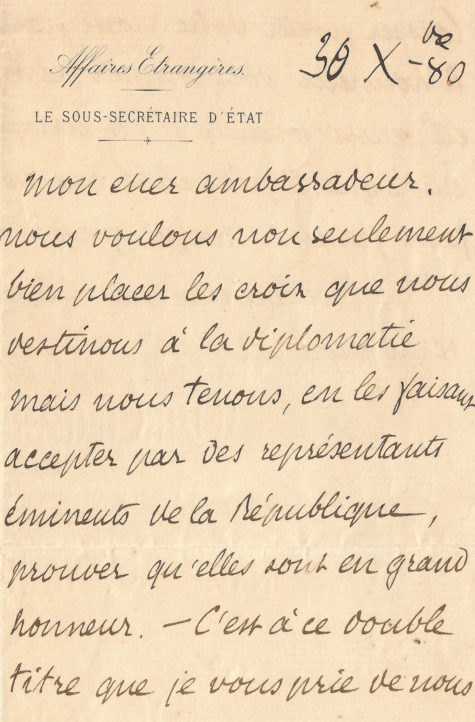 Affaires Etrangères.
30 Xbre -80
LE SOUS-SECRÉTAIRE D'ÉTAT
mon cher ambassadeur.
nous voulons non seulement
bien placer les croix que nous
destinons à la diplomatie
mais nous tenons, en les faisant
accepter par des représentants
éminents de la République,
prouver qu'elles sont en grand
honneur. — C'est à ce double
titre que je vous prie de nous